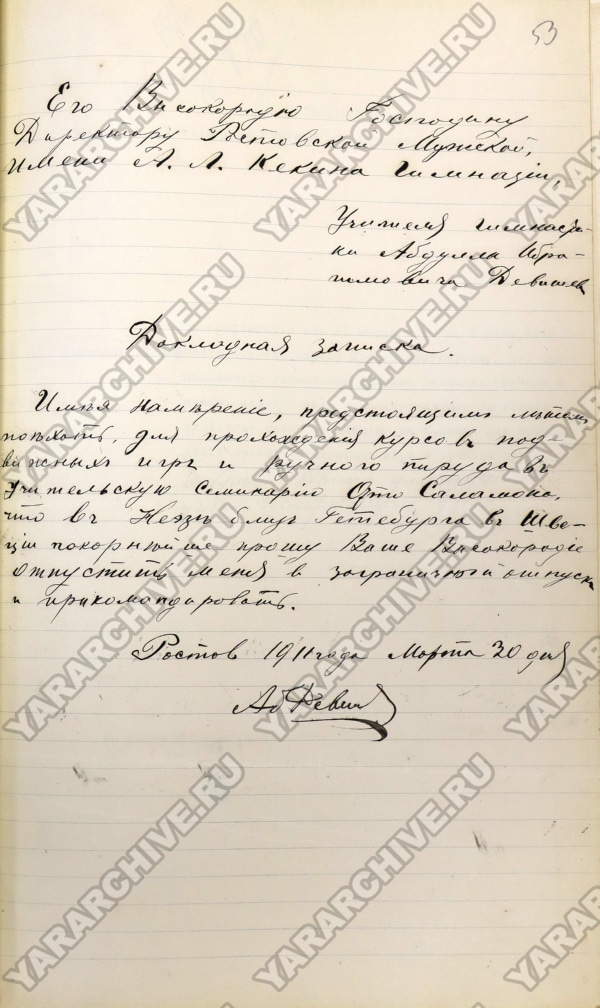 53
Его Высокородію Господину
Директору Ростовской Мужской,
имени А. Л. Кекина гимназіи,
Учителя гимнасти-
ки Абдуллы Ибра-
гимовича Девишева
Докладная записка.
Имѣя намѣреніе, предстоящимъ лѣтомъ
поѣхать, для прохожденія курсовъ под-
вижныхъ игръ и ручного труда въ
Учительскую семинарію Отто Саламона,
что въ Неэзъ близъ Гетебурга въ Шве-
ціи покорнѣйше прошу Ваше Высокородіе
отпустить меня в заграничный отпускъ
и прикомандировать.
Ростов 1911 года Марта 30 дня
Аб Девиш
YARARCHIVE.RU